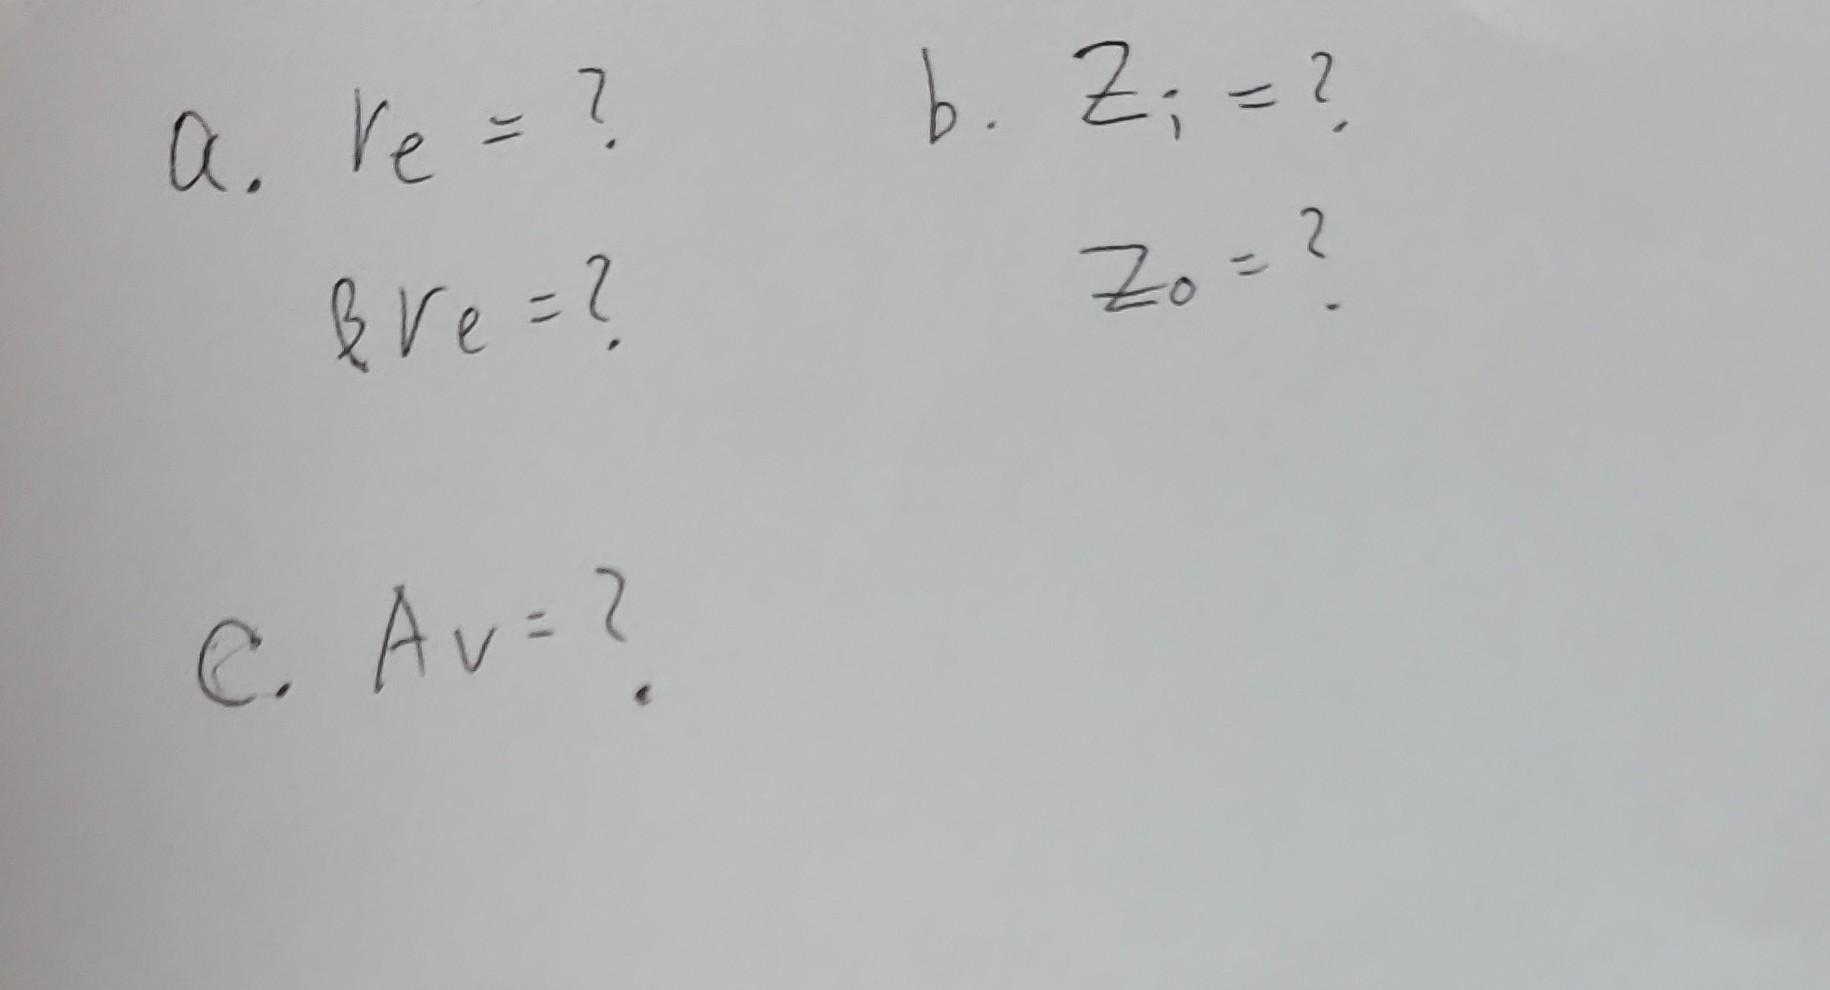 a. re = ?
βre = ?
b. Zi = ?
Zo = ?
c. Av = ?